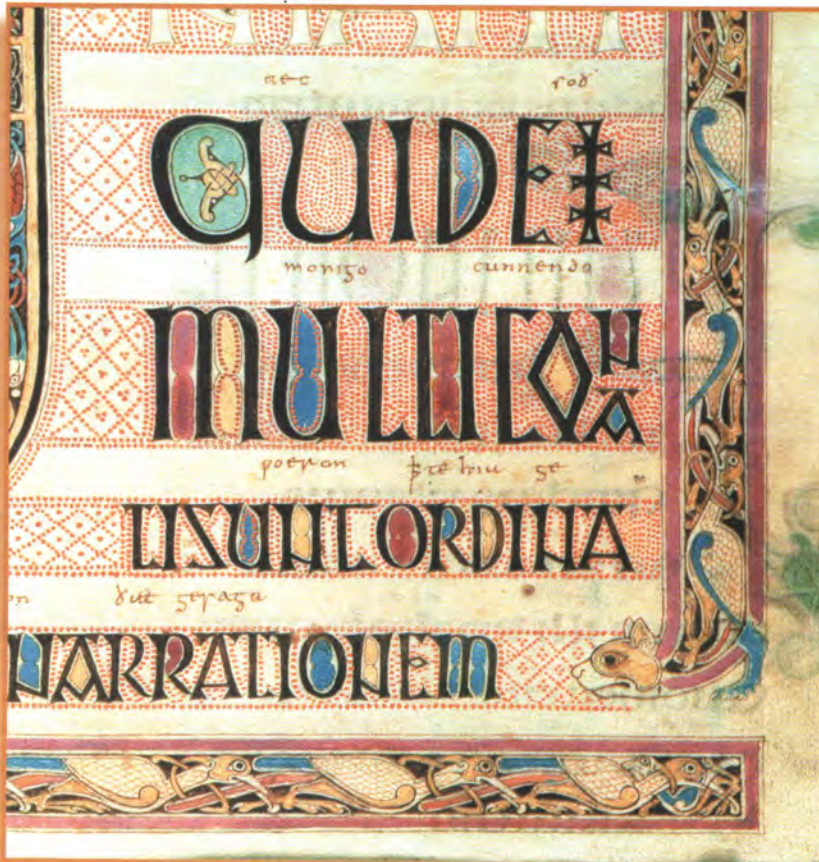 aec soð
QUIDEM
monigo cunnendo
MULTI CONA
ƿoeron ꝥte hia ge
TISUNT ORDINA
on ðæt gesaga
NARRATIONEM